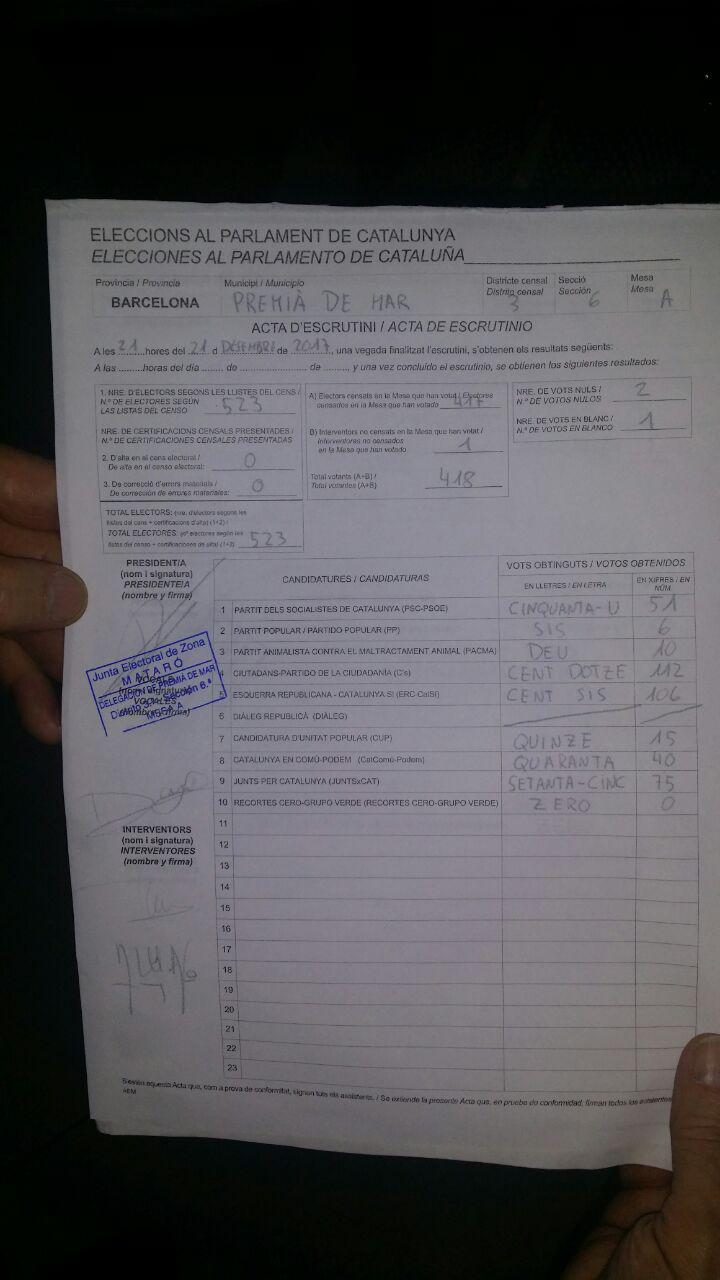 ELECCIONS AL PARLAMENT DE CATALUNYA
ELECCIONES AL PARLAMENTO DE CATALUÑA
Província / Provincia
BARCELONA
Municipi / Municipio
PREMIÀ DE MAR
Districte censal
Distrito censal
3
Secció
Sección
6
Mesa
Mesa
A
ACTA D'ESCRUTINI / ACTA DE ESCRUTINIO
A les 21 hores del 21 d DESEMBRE de 2017, una vegada finalitzat l'escrutini, s'obtenen els resultats següents:
A las ......... horas del día ...... de ........................ de ........., y una vez concluido el escrutinio, se obtienen los siguientes resultados:
1. NRE. D'ELECTORS SEGONS LES LLISTES DEL CENS /
N.º DE ELECTORES SEGÚN
LAS LISTAS DEL CENSO
523
NRE. DE CERTIFICACIONS CENSALS PRESENTADES /
N.º DE CERTIFICACIONES CENSALES PRESENTADAS
2. D'alta en el cens electoral /
De alta en el censo electoral: 0
3. De correcció d'errors materials /
De corrección de errores materiales: 0
TOTAL ELECTORS: (nre. d'electors segons les
llistes del cens + certificacions d'alta) (1+2) /
TOTAL ELECTORES: (nº electores según las
listas del censo + certificaciones de alta) (1+2) 523
A) Electors censats en la Mesa que han votat / Electores
censados en la Mesa que han votado 417
B) Interventors no censats en la Mesa que han votat /
Interventores no censados
en la Mesa que han votado 1
Total votants (A+B) /
Total votantes (A+B) 418
NRE. DE VOTS NULS /
N.º DE VOTOS NULOS 2
NRE. DE VOTS EN BLANC /
N.º DE VOTOS EN BLANCO 1
PRESIDENT/A
(nom i signatura)
PRESIDENTE/A
(nombre y firma)
Junta Electoral de Zona
MATARÓ
DELEGACION DE PREMIÀ DE MAR
Sección 6.ª
MESA A
VOCALS
(nom i signatura)
VOCALES
(nombre y firma)
INTERVENTORS
(nom i signatura)
INTERVENTORES
(nombre y firma)
CANDIDATURES / CANDIDATURAS
VOTS OBTINGUTS / VOTOS OBTENIDOS
EN LLETRES / EN LETRA
EN XIFRES / EN NÚM.
1 PARTIT DELS SOCIALISTES DE CATALUNYA (PSC-PSOE) CINQUANTA-U 51
2 PARTIT POPULAR / PARTIDO POPULAR (PP) SIS 6
3 PARTIT ANIMALISTA CONTRA EL MALTRACTAMENT ANIMAL (PACMA) DEU 10
4 CIUTADANS-PARTIDO DE LA CIUDADANÍA (C's) CENT DOTZE 112
5 ESQUERRA REPUBLICANA - CATALUNYA SÍ (ERC-CatSí) CENT SIS 106
6 DIÀLEG REPUBLICÀ (DIÀLEG)
7 CANDIDATURA D'UNITAT POPULAR (CUP) QUINZE 15
8 CATALUNYA EN COMÚ-PODEM (CatComú-Podem) QUARANTA 40
9 JUNTS PER CATALUNYA (JUNTSxCAT) SETANTA-CINC 75
10 RECORTES CERO-GRUPO VERDE (RECORTES CERO-GRUPO VERDE) ZERO 0
11
12
13
14
15
16
17
18
19
20
21
22
23
S'estén aquesta Acta que, com a prova de conformitat, signen tots els assistents. / Se extiende la presente Acta que, en prueba de conformidad, firman todos los asistentes